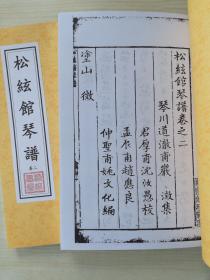 松絃館琴譜
松絃館琴譜卷之二
琴川道澈嚴 澂集
君厚甫沈汝愚校
孟作甫趙應良
仲聖甫姚文化編
塗山 徵